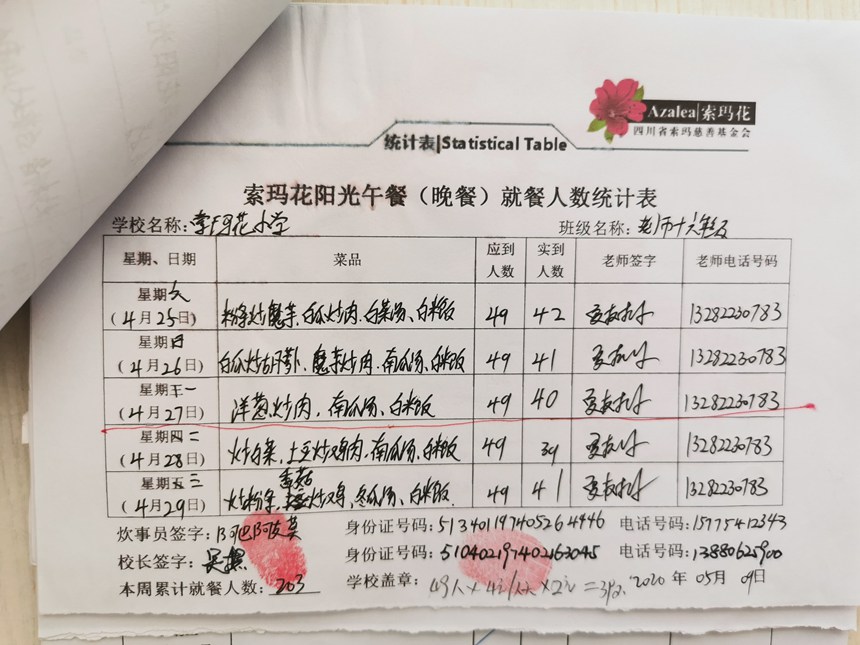 Azalea|索玛花
四川省索玛慈善基金会
统计表|Statistical Table
索玛花阳光午餐（晚餐）就餐人数统计表
学校名称：索玛花小学 班级名称：老师十六年级
星期、日期 菜品 应到人数 实到人数 老师签字 老师电话号码
星期六
(4月25日) 粉条炒魔芋、白瓜炒肉、白菜汤、白米饭 49 42 13282230783
星期日
(4月26日) 白瓜炒胡萝卜、魔芋炒肉、南瓜汤、白米饭 49 41 13282230783
星期一
(4月27日) 洋葱炒肉、南瓜汤、白米饭 49 40 13282230783
星期二
(4月28日) 炒白菜、土豆炒鸡肉、南瓜汤、白米饭 49 39 13282230783
星期三
(4月29日) 炒粉条、香菇炒鸡、冬瓜汤、白米饭 49 41 13282230783
炊事员签字： 身份证号码：513401197405264446 电话号码：15775412343
校长签字： 身份证号码：510402197402163045 电话号码：13880625900
本周累计就餐人数：203 学校盖章： 2020年05月09日